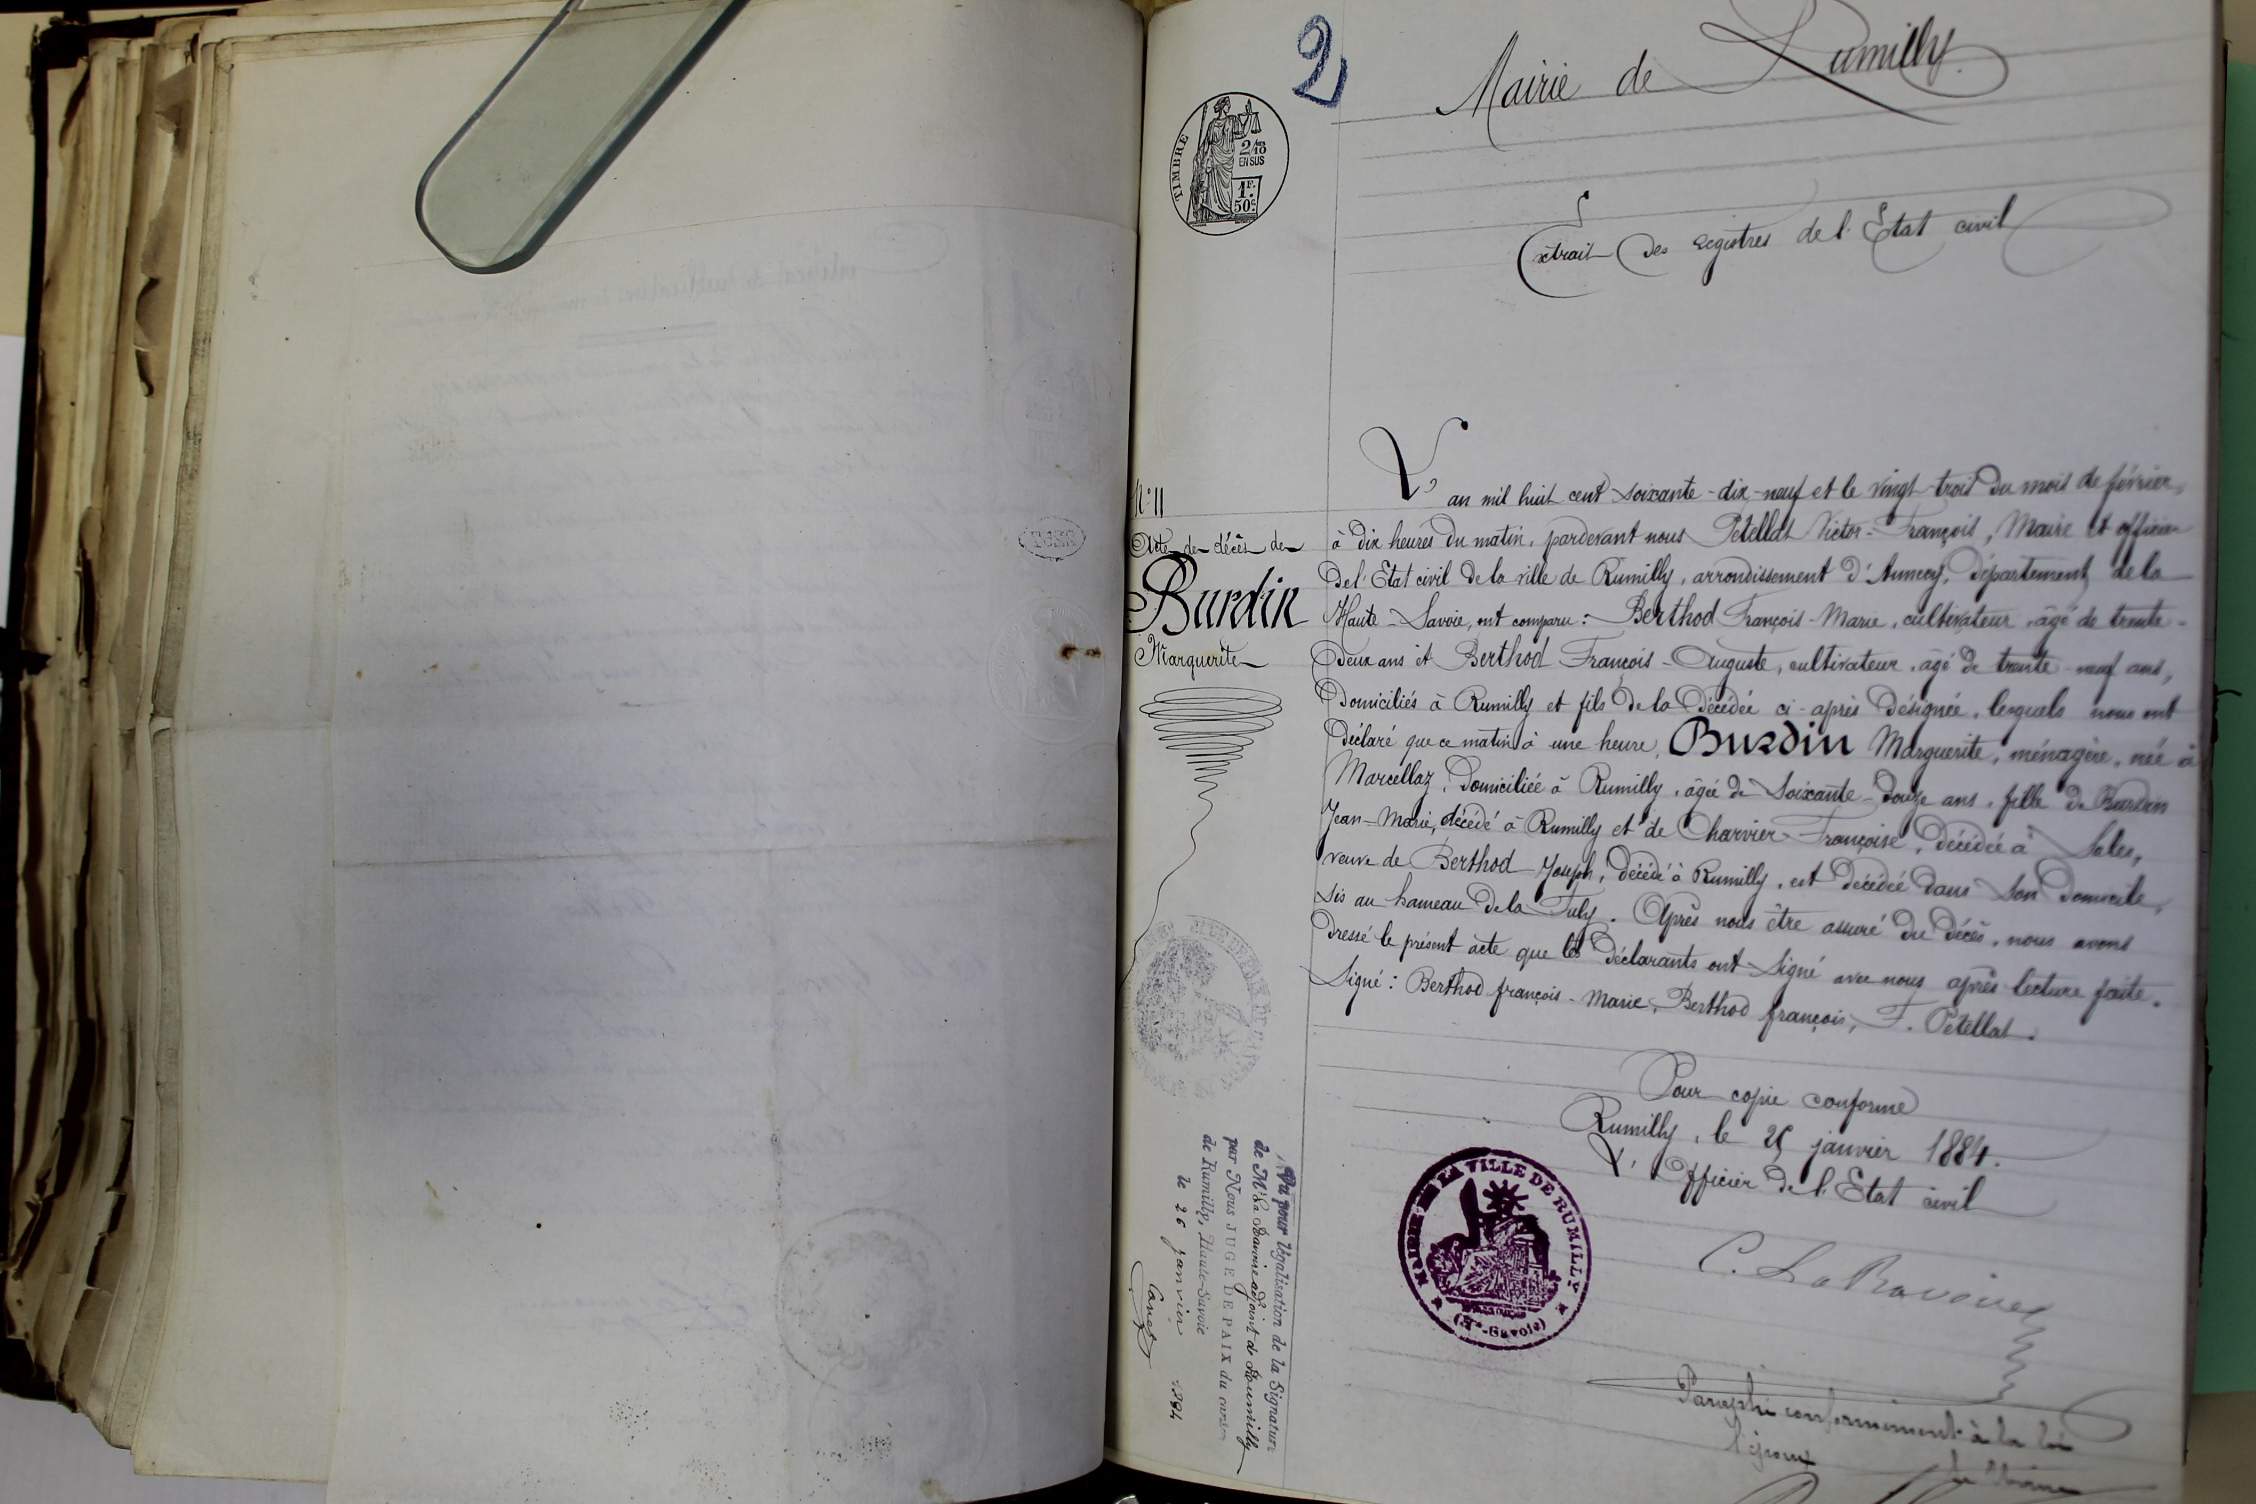 2
Mairie de Rumilly.
TIMBRE
2/10
EN SUS
1F.
50c.
Extrait des registres de l'Etat civil
N° 11
Acte de décès de
Burdin
Marguerite
L'an mil huit cent soixante-dix-neuf et le vingt-trois du mois de février,
à dix heures du matin, pardevant nous Petellat Victor-François, Maire et officier
de l'Etat civil de la ville de Rumilly, arrondissement d'Annecy, département de la
Haute-Savoie, ont comparu: Berthod François-Marie, cultivateur, âgé de trente-
deux ans et Berthod François-Auguste, cultivateur, âgé de trente-neuf ans,
domiciliés à Rumilly et fils de la décédée ci-après désignée, lesquels nous ont
déclaré que ce matin à une heure, Burdin Marguerite, ménagère, née à
Marcellaz, domiciliée à Rumilly, âgée de soixante-douze ans, fille de Burdin
Jean-Marie, décédé à Rumilly et de Charvier Françoise, décédée à Sales,
veuve de Berthod Joseph, décédé à Rumilly, est décédée dans son domicile,
sis au hameau de la Fuly. Après nous être assuré du décès, nous avons
dressé le présent acte que les déclarants ont signé avec nous après lecture faite.
Signé: Berthod françois-Marie, Berthod françois, F. Petellat.
Pour copie conforme
Rumilly, le 25 janvier 1884.
L'Officier de l'Etat civil
C. La Ravoire
MAIRIE DE LA VILLE DE RUMILLY
(Hte-Savoie)
Vu pour légalisation de la Signature
de Mr La Ravoire adjoint de Rumilly
par Nous JUGE DE PAIX du canton
de Rumilly, Haute-Savoie
le 26 janvier 1884
Paraphé conformément à la loi
l'époux